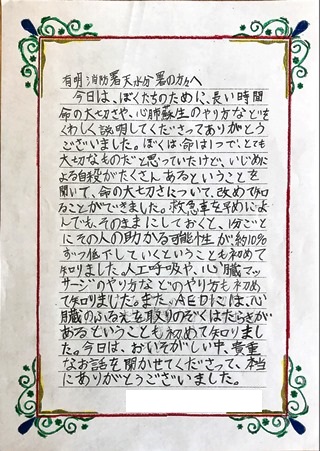 有明消防署天水分署の方々へ
今日は、ぼくたちのために、長い時間
命の大切さや、心肺蘇生のやり方などを
くわしく説明してくださってありがとう
ございました。ぼくは命は1つで、とても
大切なものだと思っていたけど、いじめに
よる自殺がたくさんあるということを
聞いて、命の大切さについて、改めて知
ることができました。救急車を早めによ
んでも、そのままにしておくと、1分ごと
にその人の助かる可能性が約10%
ずつ低下していくということも初めて
知りました。人工呼吸や、心臓マッ
サージのやり方などのやり方も初め
て知りました。また、AEDには、心
臓のふるえを取りのぞくはたらきが
あるということも初めて知りまし
た。今日は、おいそがしい中、貴重
なお話を聞かせてくださって、本当
にありがとうございました。